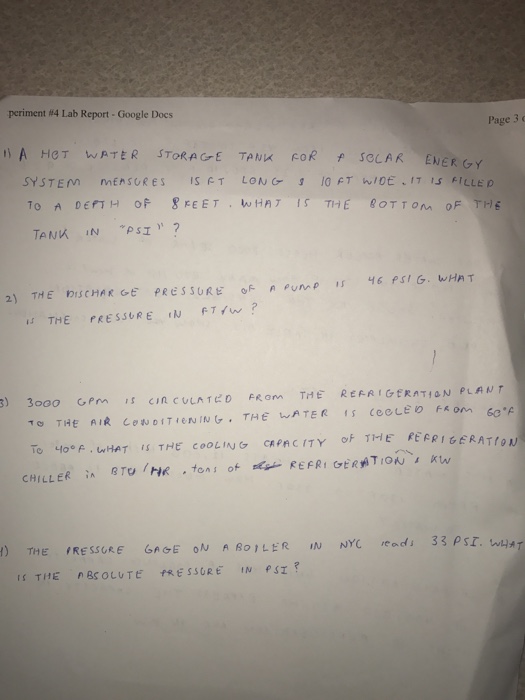 periment #4 Lab Report - Google Docs
Page 3
1) A HOT WATER STORAGE TANK FOR A SOLAR ENERGY
SYSTEM MEASURES 15 FT LONG & 10 FT WIDE. IT IS FILLED
TO A DEPTH OF 8 FEET. WHAT IS THE BOTTOM OF THE
TANK IN "PSI"?
2) THE DISCHARGE PRESSURE OF A PUMP IS 46 PSIG. WHAT
IS THE PRESSURE IN FT/W?
3) 3000 GPM IS CIRCULATED FROM THE REFRIGERATION PLANT
TO THE AIR CONDITIONING. THE WATER IS COOLED FROM 60°F
TO 40°F. WHAT IS THE COOLING CAPACITY OF THE REFRIGERATION
CHILLER in BTU/HR. tons of REFRIGERATION & KW
4) THE PRESSURE GAGE ON A BOILER IN NYC reads 33 PSI. WHAT
IS THE ABSOLUTE PRESSURE IN PSI?